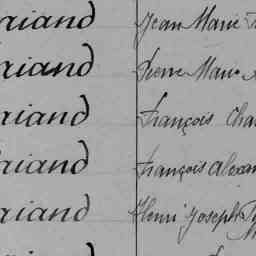 riand Jean Marie
riand Pierre Marie
riand François Cha
riand François Alexan
riand Henri Joseph